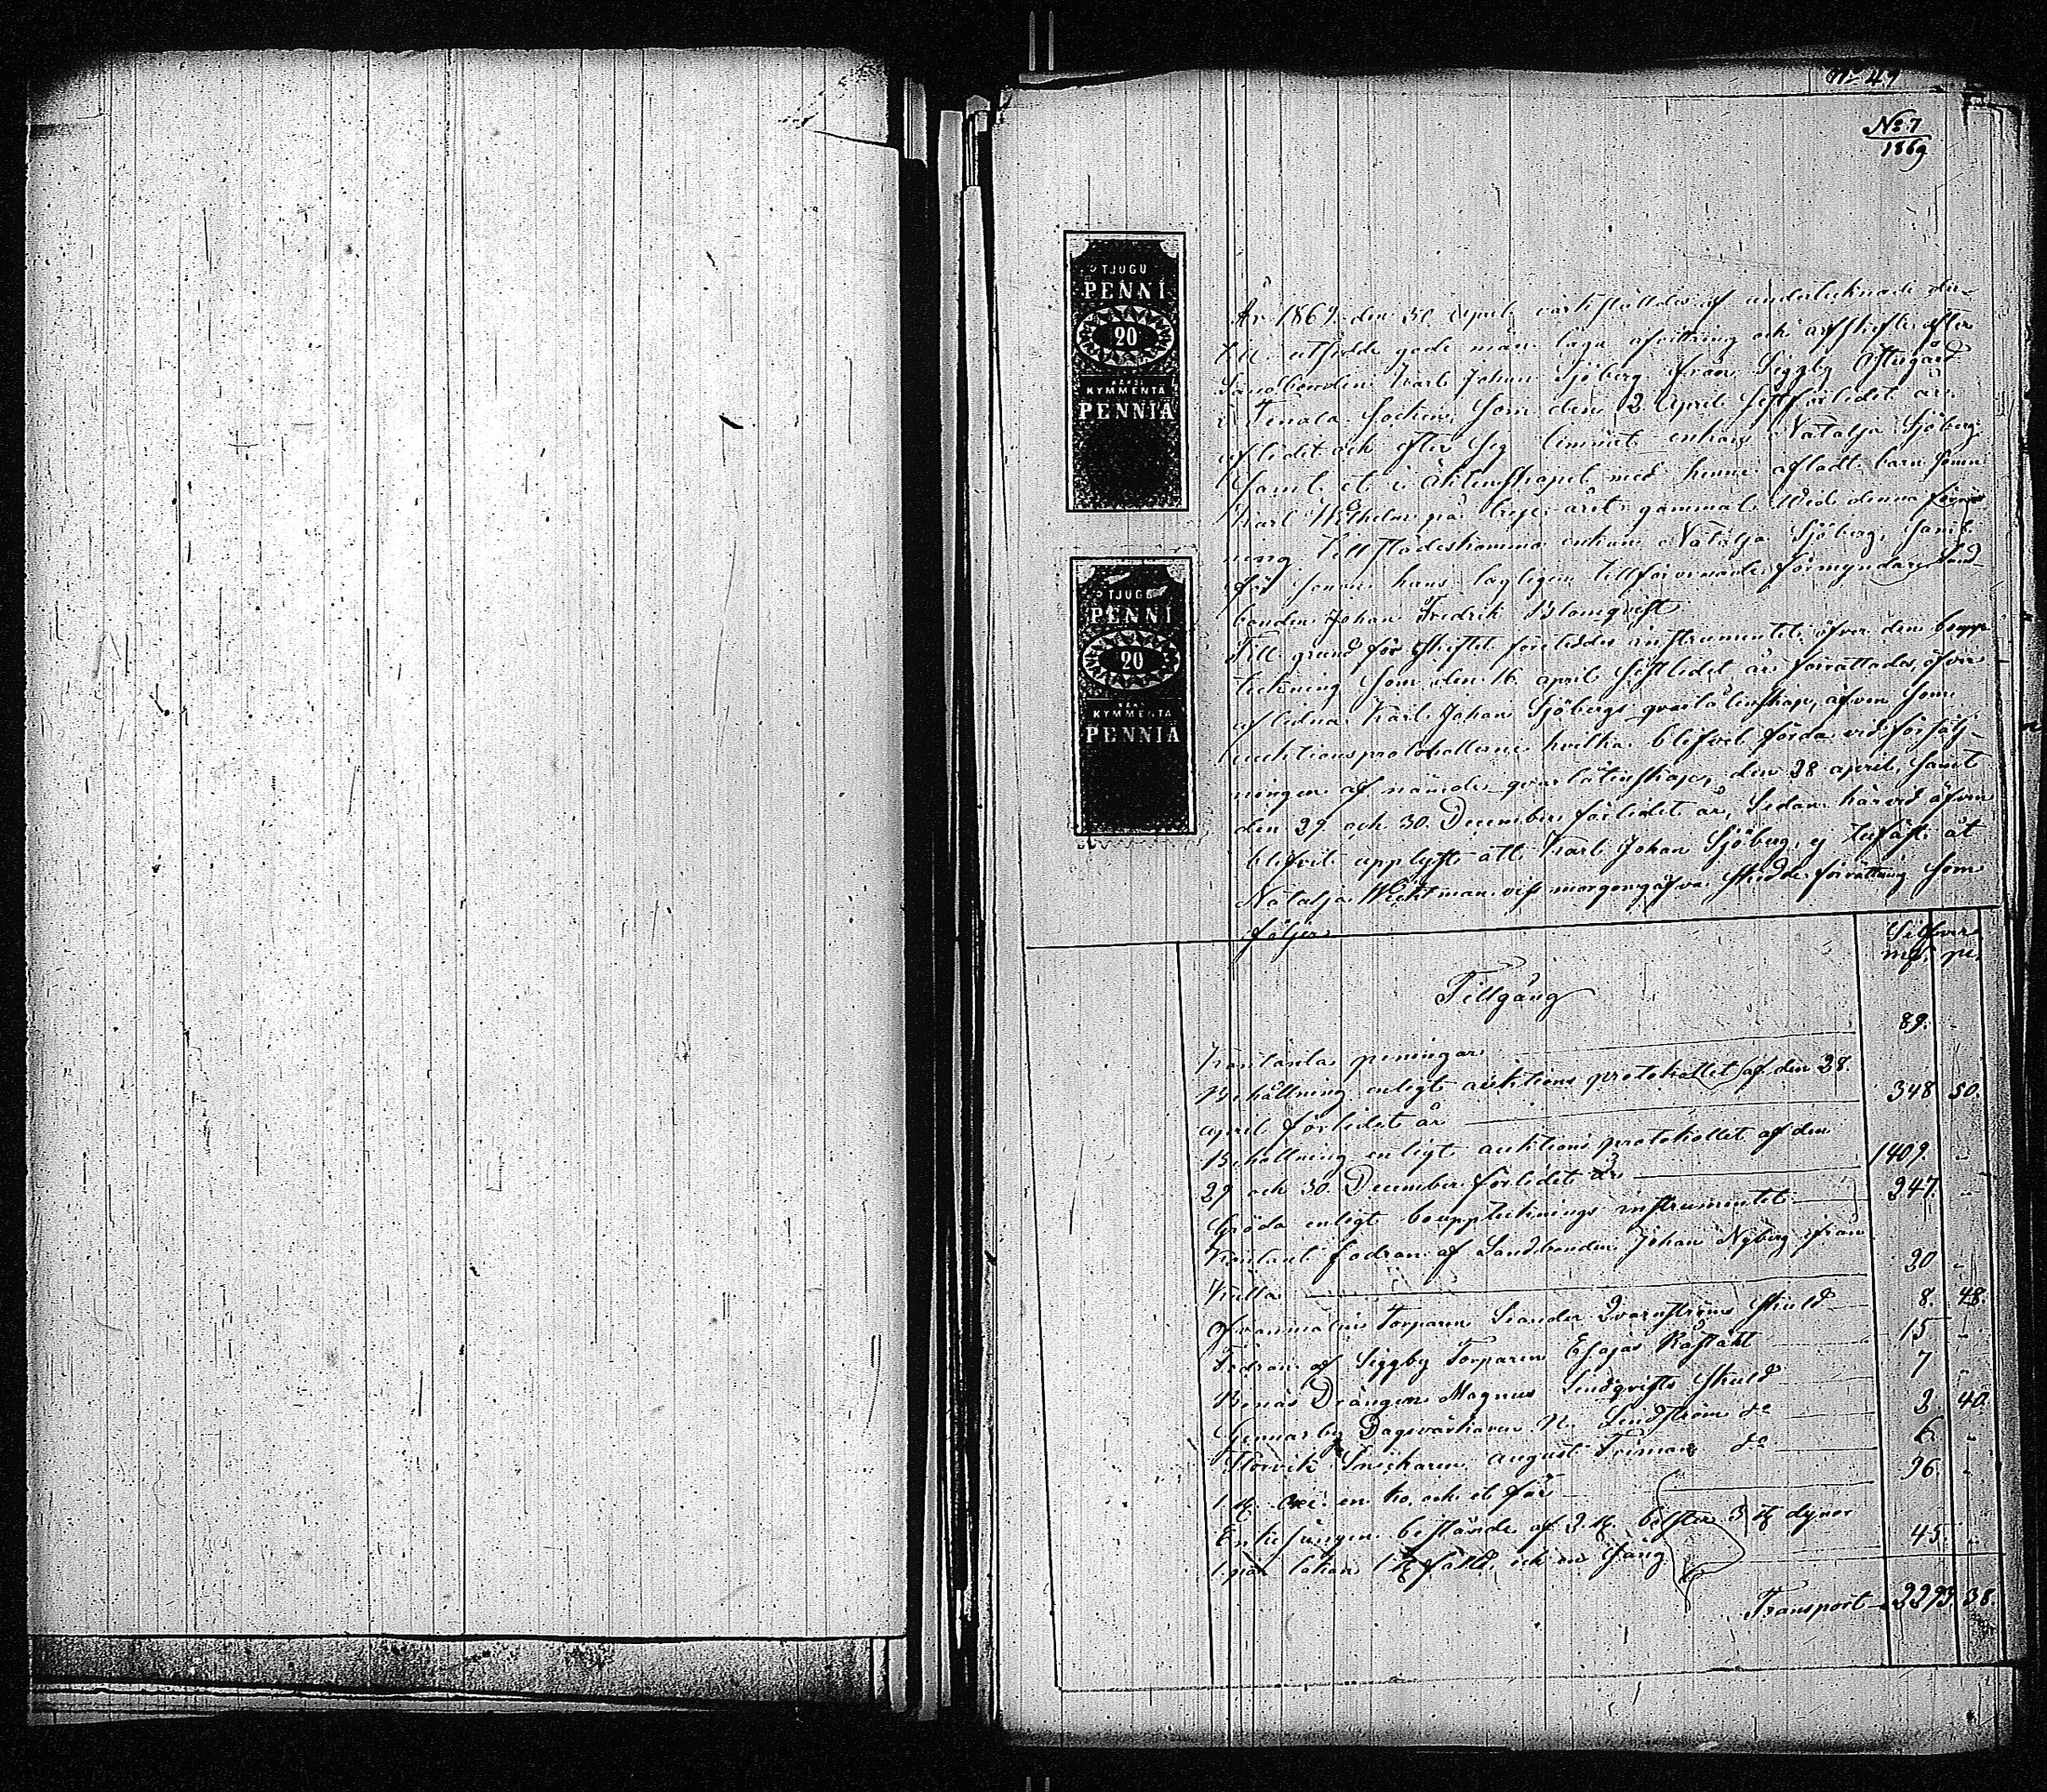 N:o 49
No 7
1869
TJUGU
PENNI
20
KAKSI
KYMMENTÄ
PENNIÄ
TJUGU
PENNI
20
KAKSI
KYMMENTÄ
PENNIÄ
År 1869 den 30 April verkstäldes af undertecknade der-
till utsedde gode män laga afvittring och arfskifte efter
Landbonden Karl Johan Sjöberg från Siggby Östergård
i Tenala Socken, som den 2 April sistförledet år
aflidit och efter sig lemnat enkan Natalja Sjöberg
samt et i äktenskapet med henne afladt barn sonen
Karl Wilhelm på tredje året gammal. Wid denna förrätt-
ning tillstädeskommo enkan Natalja Sjöberg, samt
för sonen hans lagligen tillförordnade förmyndare land-
bonden Johan Fredrik Blomqvist
Till grund för skiftet föreladdes instrumentet öfver den bouppt-
teckning som den 16 april sistledet år förrättades öfver
aflidna Karl Johan Sjöbergs qvarlåtenskap, äfven som
auktionsprotokollerne hvilka blifvit förda vid försälj-
ningen af nämnde qvarlåtenskap, den 28 april, samt
den 29 och 30 December förledet år, Sedan härvid äfven
blifvit upplyst att Karl Johan Sjöberg ej utfäst åt
Natalja Wicktman viss morgongåfva skedde förrättning som
följer
Silfver
mk. pi.
Tillgång
Kontanta peningar 89. "
Behållning enligt auktions protokollet af den 28.
april förledet år 348 50.
Behållning enligt auktions protokollet af den
29 och 30 December förledet år 1409. "
Gröda enligt bouppteknings instrumentet 247. "
Kontant fodran af Landbonden Johan Nyberg ifrån
Kulla 20 "
Torparen Leander Qvarnströms skuld 8. 48.
Fodran af Siggby Torparen Esajas 15 "
Drängen Magnus Lindqvists skuld 7 "
Gennarby Dagsverkaren N. Lindström do 2. 40.
Snickaren August do 6 "
1 st. en ko och et får 96. "
Enkesängen bestånde af 2 st. bolster 3 st dynor
1 par lakan 1 st fäll och en säng 45. "
Transport 2293 38.